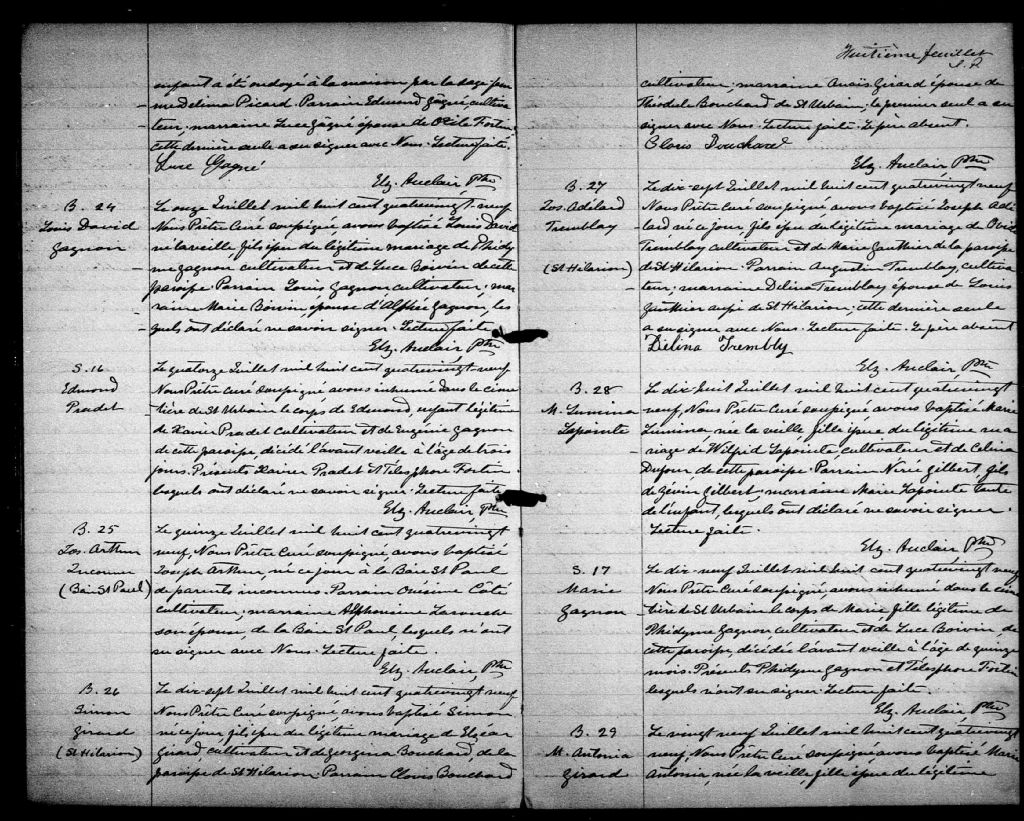 enfant a été ondoyé à la maison par la sage-fem
me Delima Picard Parrain Edmond Gagné, cultiva
teur; marraine Luce Gagné épouse de Fortin
cette dernière seule a su signer avec Nous. Lecture faite.
Luce Gagné
Elz. Auclair Ptre
B. 24
Louis David
Gagnon
Le onze Juillet mil huit cent quatrevingt-neuf
Nous Prêtre Curé soussigné avons baptisé Louis David
né la veille, fils issu du légitime mariage de Phidy
me Gagnon, cultivateur et de Luce Boivin de cette
paroisse. Parrain Louis Gagnon cultivateur; mar
raine Marie Boivin, épouse d'Alfred Gagnon, les
quels ont déclaré ne savoir signer. Lecture faite
Elz. Auclair Ptre
S. 16
Edmond
Pradet
Le quatorze Juillet mil huit cent quatrevingt neuf
Nous Prêtre Curé soussigné avons inhumé dans le cime
tière de St Urbain le corps de Edmond, enfant légitime
de Xavier Pradet cultivateur et de Eugénie Gagnon
de cette paroisse décédé l'avant veille à l'âge de trois
jours. Présents Xavier Pradet et Telesphore Fortin
lesquels ont déclaré ne savoir signer. Lecture faite
Elz. Auclair, Ptre
B. 25
Jos. Arthur
Inconnu
(Baie St Paul)
Le quinze Juillet mil huit cent quatrevingt
neuf, Nous Prêtre Curé soussigné avons baptisé
Joseph Arthur, né ce jour à la Baie St Paul
de parents inconnus. Parrain Onésime Côté
cultivateur; marraine Alphonsine Larouche
son épouse, de la Baie St Paul, lesquels n'ont
su signer avec Nous. Lecture faite.
Elz. Auclair Ptre
B. 26
Simon
Girard
(St Hilarion)
Le dix-sept Juillet mil huit cent quatrevingt neuf
Nous Prêtre Curé soussigné avons baptisé Simon
né ce jour, fils issu du légitime mariage de Elzéar
Girard, cultivateur et de Georgina Bouchard, de la
paroisse de St Hilarion. Parrain Clovis Bouchard
Huitième feuillet
cultivateur; marraine Anaïs Girard épouse de
Théodule Bouchard de St Urbain; le premier seul a su
signer avec Nous. Lecture faite. Le père absent.
Cloris Bouchard
Elz. Auclair Ptre
B. 27
Jos. Adélard
Tremblay
(St Hilarion)
Le dix-sept Juillet mil huit cent quatrevingt neuf
Nous Prêtre Curé soussigné avons baptisé Joseph Adé
lard né ce jour, fils issu du légitime mariage de
Tremblay cultivateur et de Marie Gauthier de la paroisse
de St Hilarion. Parrain Augustin Tremblay, cultiva
teur; marraine Délina Tremblay épouse de Louis
Gauthier aussi de St Hilarion; cette dernière seule
a su signer avec Nous. Lecture faite. Le père absent
Délina Trembly
Elz. Auclair Ptre
B. 28
M. Lumina
Lapointe
Le dix-huit Juillet mil huit cent quatrevingt
neuf, Nous Prêtre Curé soussigné avons baptisé Marie
Lumina, née la veille, fille issue du légitime ma
riage de Wilfrid Lapointe, cultivateur et de Celina
Dufour, de cette paroisse. Parrain Gilbert, fils
de Gilbert; marraine Marie Lapointe tante
de l'enfant lesquels ont déclaré ne savoir signer.
Lecture faite.
Elz. Auclair Ptre
S. 17
Marie
Gagnon
Le dix-neuf Juillet mil huit cent quatrevingt neuf
Nous Prêtre Curé soussigné, avons inhumé dans le cime
tière de St Urbain le corps de Marie, fille légitime de
Phidyme Gagnon cultivateur et de Luce Boivin, de
cette paroisse, décédée l'avant veille à l'âge de quinze
mois. Présents Phidyme Gagnon et Télesphore Fortin
lesquels n'ont su signer. Lecture faite.
Elz. Auclair Ptre
B. 29
M. Antonia
Girard
Le vingt Juillet mil huit cent quatrevingt
neuf, Nous Prêtre Curé soussigné, avons baptisé Marie
Antonia, née la veille, fille issue du légitime